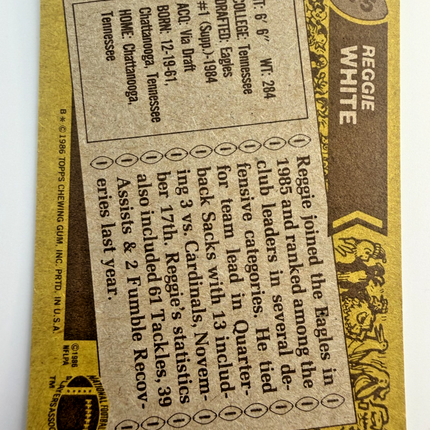 REGGIE
WHITE
HT: 6' 6" WT: 284
COLLEGE: Tennessee
DRAFTED: Eagles
#1 (Supp.)-1984
ACQ: Via Draft
BORN: 12-19-61,
Chattanooga, Tennessee
HOME: Chattanooga,
Tennessee
Reggie joined the Eagles in
1985 and ranked among the
club leaders in several de-
fensive categories. He tied
for team lead in Quarter-
back Sacks with 13 includ-
ing 3 vs. Cardinals, Novem-
ber 17th. Reggie's statistics
also included 61 Tackles, 39
Assists & 2 Fumble Recov-
eries last year.
B * © 1986 TOPPS CHEWING GUM, INC. PRTD. IN U.S.A.
© 1986
NFLPA
NATIONAL FOOTBALL
PLAYERS ASSOC
TM